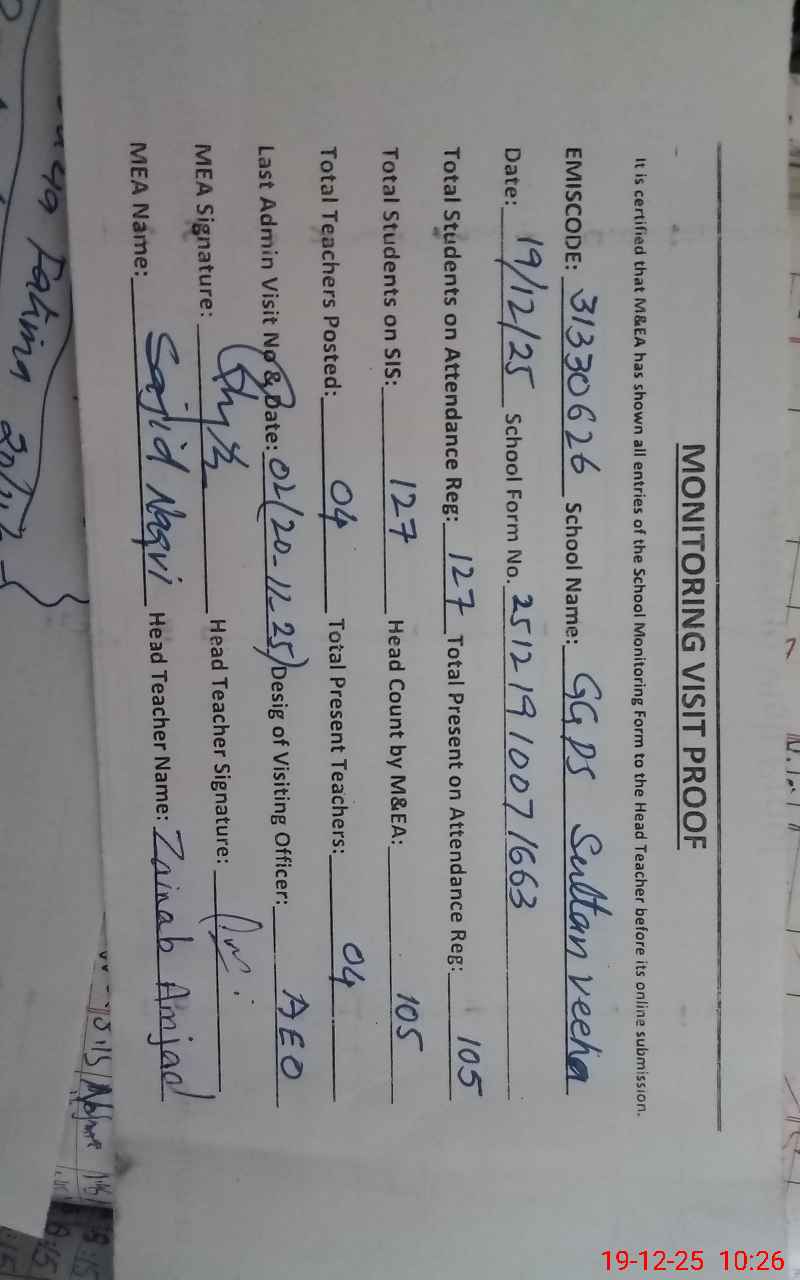 MONITORING VISIT PROOF
It is certified that M&EA has shown all entries of the School Monitoring Form to the Head Teacher before its online submission.
EMISCODE: 31330626 School Name: GGPS Sultan veeha
Date: 19/12/25 School Form No. 2512191007 1663
Total Students on Attendance Reg: 127 Total Present on Attendance Reg: 105
Total Students on SIS: 127 Head Count by M&EA: 105
Total Teachers Posted: 04 Total Present Teachers: 04
Last Admin Visit No & Date: 02(20-11-25) Desig of Visiting Officer: AEO
MEA Signature: Head Teacher Signature:
MEA Name: Sajid Naqvi Head Teacher Name: Zainab Amjad
Fatima
19-12-25 10:26